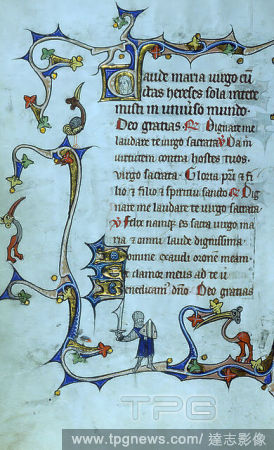 Gaude maria virgo cū
ctas hereses sola intere
misti in universo mundo.
Deo gratias. Dignare me
laudare te virgo sacrata. Da m
virtutem contra hostes tuos.
virgo sacrata. Gloria pr̄i & fi
lio & filio & spiritui sancto. Dig
nare me laudare te virgo sacrata
Felix namq; es sacra virgo ma
ria & omni laude dignissima
Domine exaudi oz̄one meam
et clamor meus ad te ū
Benedicam' dn̄o. Deo gratias
TPG
www.tpgnews.com/達志影像